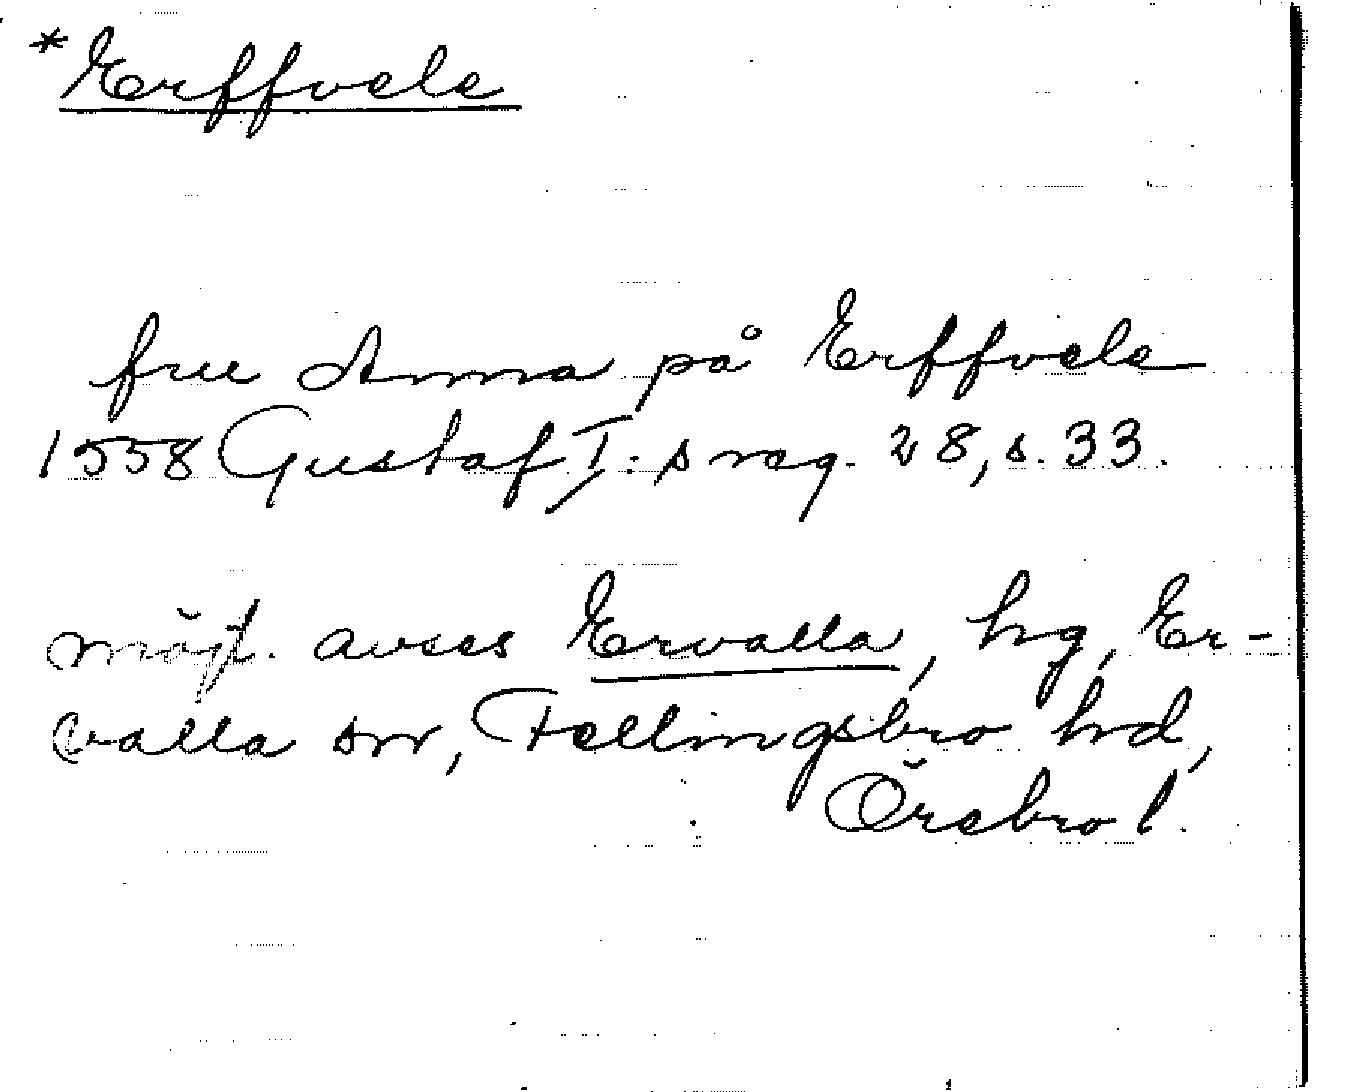 *Erffvele
frue Anna på Erffvele
1558 Gustaf I:s reg. 28, s. 33.
möjl. avses Ervalla, hg, Er-
valla sn, Fellingsbro hd,
Örebro l.